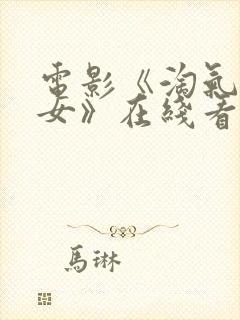 電影《淘氣
女》在綫看
馬琳